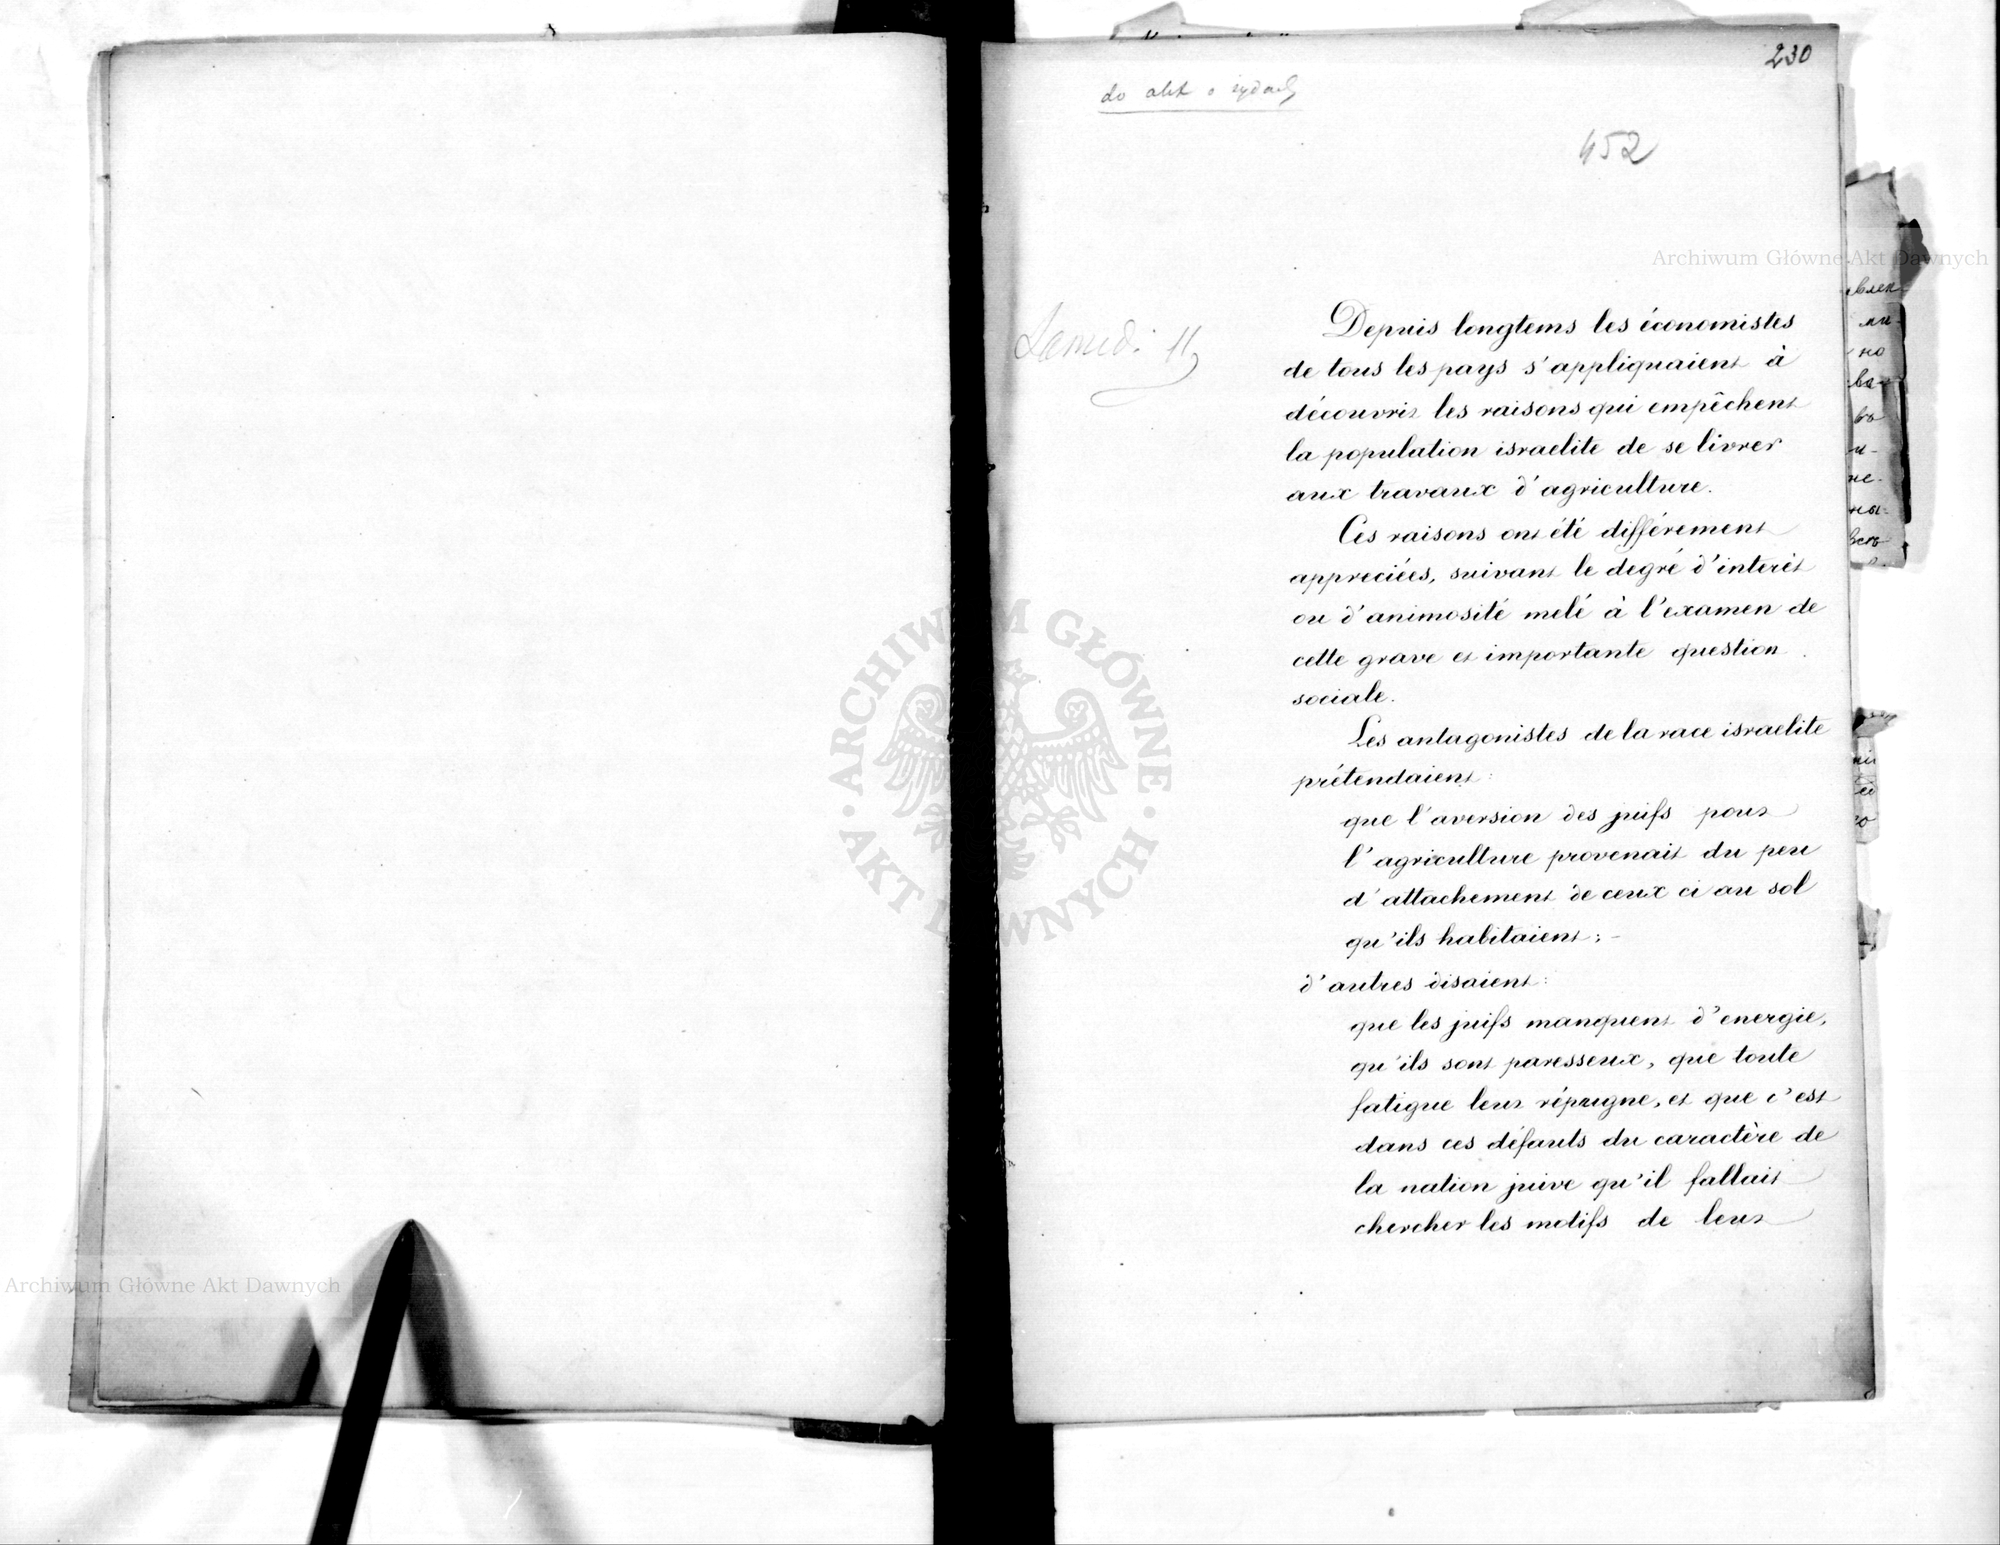 230
do akt o żydach
452
Samedi 11
Depuis longtems les économistes
de tous les pays s'appliquaient à
découvrir les raisons qui empêchent
la population israelite de se livrer
aux travaux d'agriculture.
Ces raisons ont été différement
appreciées, suivant le degré d'interêt
ou d'animosité melé à l'examen de
cette grave et importante question
sociale.
Les antagonistes de la race israelite
prétendaient:
que l'aversion des juifs pour
l'agriculture provenait du peu
d'attachement de ceux ci au sol
qu'ils habitaient; –
d'autres disaient:
que les juifs manquent d'energie,
qu'ils sont paresseux, que toute
fatigue leur répugne, et que c'est
dans ces défauts du caractère de
la nation juive qu'il fallait
chercher les motifs de leur
Archiwum Główne Akt Dawnych
ARCHIWUM GŁÓWNE · AKT DAWNYCH ·
Archiwum Główne Akt Dawnych